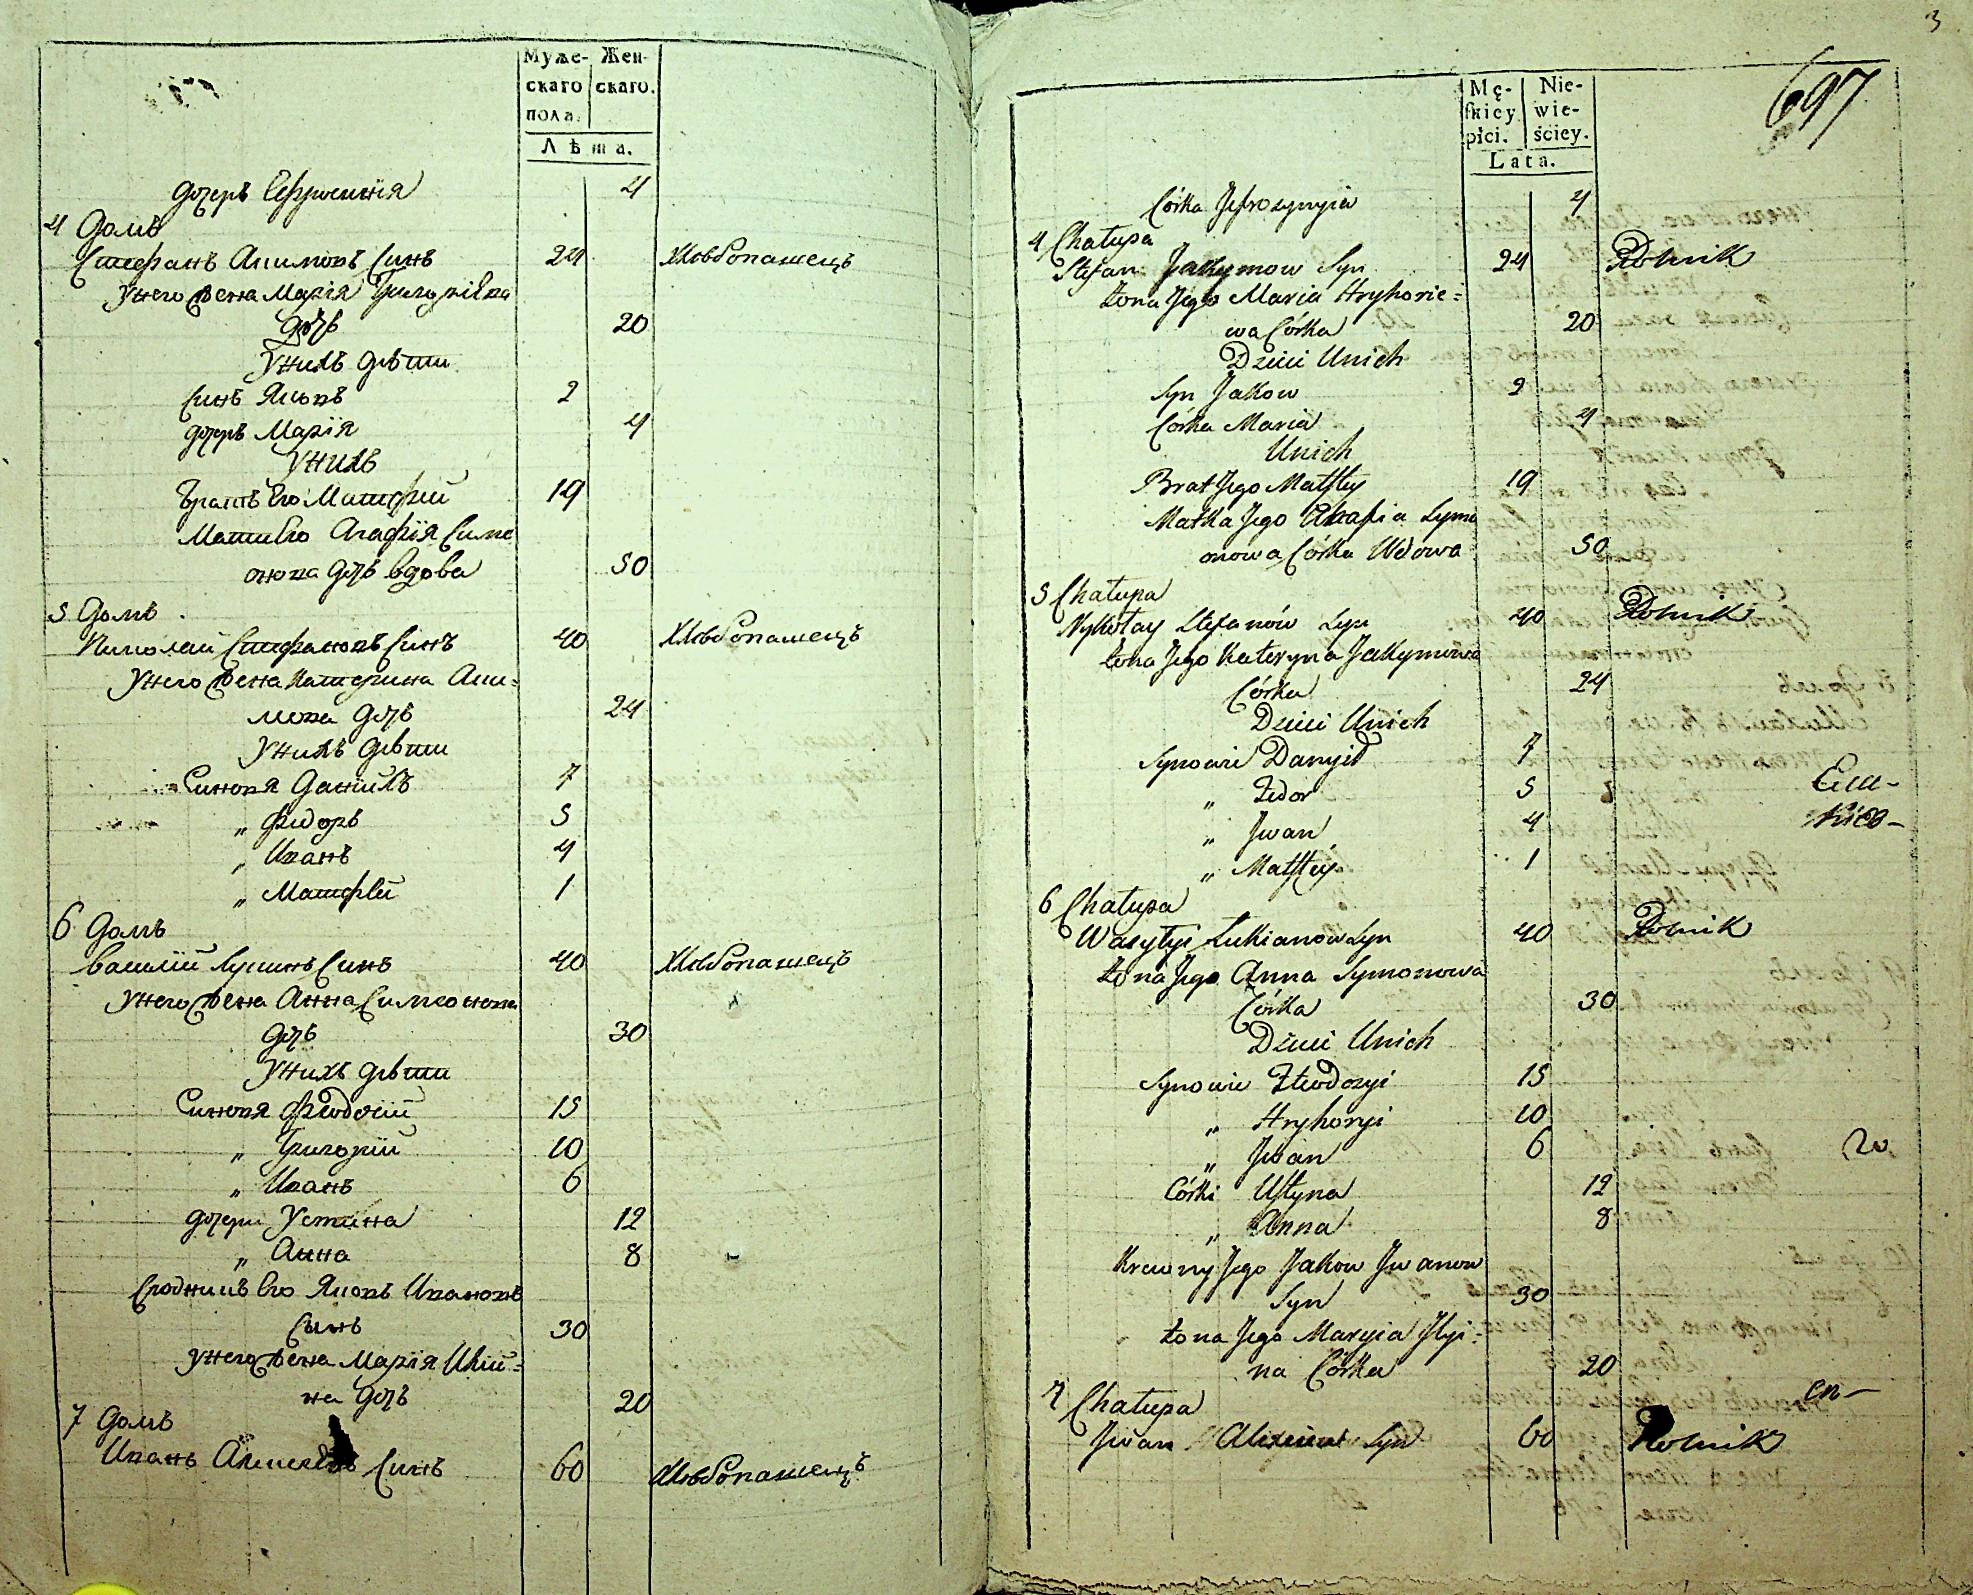 Муже- Жен-
скаго скаго.
пола.
Лѣта.
дочерь Ефросинія 4
4 Домъ
Стефанъ Акимовъ Синъ 24 Хлѣбопашецъ
У него жена Марія Григоріева
дочь 20
У нихъ дѣти
Синъ Яковъ 2
дочерь Марія 4
У нихъ
Братъ Его Матфій 19
Мати Его Агафія Симе
онова дочь вдова 50
5 Домъ
Николай Стефановъ Синъ 40 Хлѣбопашецъ
У него жена Катерина Аки=
мова дочь 24
У нихъ дѣти
Синовя Даниилъ 7
„ Фидоръ 5
„ Иванъ 4
„ Матфѣй 1
6 Домъ
Василій Лукинъ Синъ 40 Хлѣбопашецъ
У него жена Анна Симеонова
дочь 30
У нихъ дѣти
Синовя Феодосій 15
„ Григорій 10
„ Иванъ 6
дочери Устина 12
„ Анна 8
Сродникъ Его Яковъ Ивановъ
Сынъ 30
У него жена Марія Илій=
на дочь 20
7 Домъ
Иванъ Алексѣевъ Синъ 60 Хлѣбопашецъ
3
697
Mę- Nie-
skiey wie-
płci. ściey.
Lata.
Córka Jefrozynyia 4
4 Chałupa
Stefan Jakymow Syn 24 Rolnik
żona Jego Maria Hryhorie=
wa Córka 20
Dzieci Unich
Syn Jakow 2
Córka Maria 4
Unich
Brat Jego Matftey 19
Matka Jego Ahafia Syme
onowa Córka Wdowa 50
5 Chałupa
Nykołay Stefanów Syn 40 Rolnik
żona Jego Kateryna Jakymowa
Córka 24
Dzieci Unich
Synowie Danyił 7
„ Fedor 5
„ Jwan 4
„ Matftey 1
6 Chałupa
Wasylyi Łukianow Syn 40 Rolnik
żona Jego Anna Symonowa
Córka 30
Dzieci Unich
Synowie Fteodozyi 15
„ Hryhoryi 10
„ Jwan 6
Córki Ustyna 12
„ Anna 8
Krewny Jego Jakow Jwanow
Syn 30
żona Jego Maryia Jlyi=
na Córka 20
7 Chałupa
Jwan Alexieiew Syn 60 Rolnik